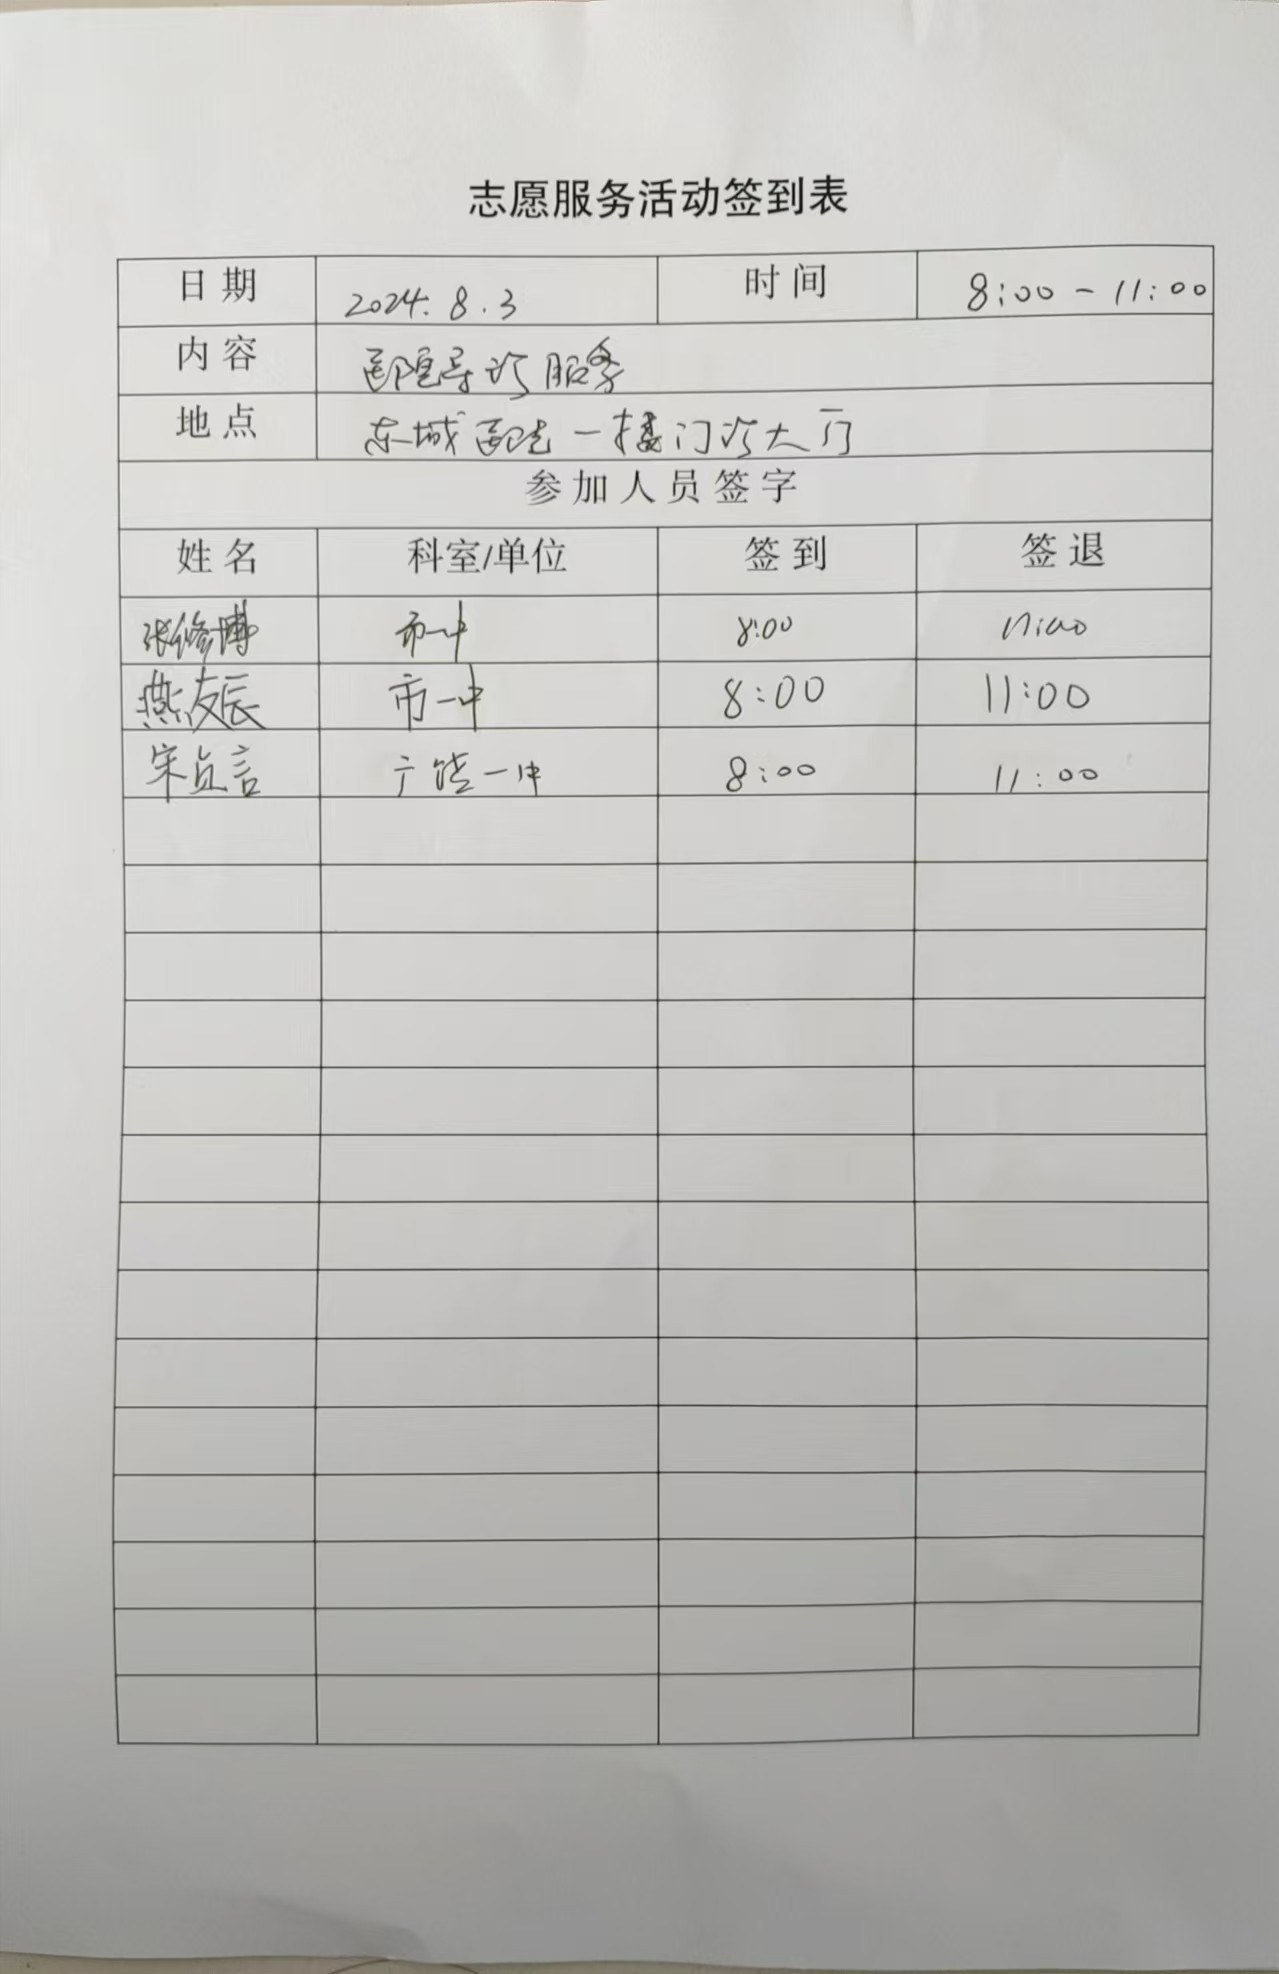 志愿服务活动签到表
日期 2024.8.3 时间 8:00-11:00
内容 医院导诊服务
地点 东城医院一楼门诊大厅
参加人员签字
姓名 科室/单位 签到 签退
张修博 市一中 8:00 11:00
燕友辰 市一中 8:00 11:00
宋贞言 广饶一中 8:00 11:00